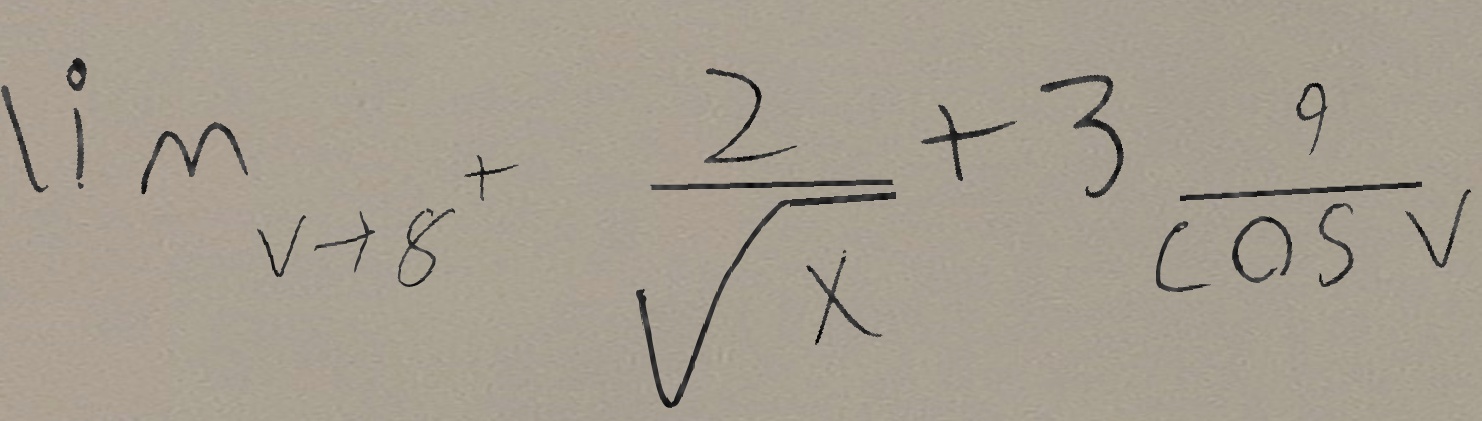 \lim_{v \to 8^+} \frac{2}{\sqrt{x}} + 3 \frac{9}{\cos v}